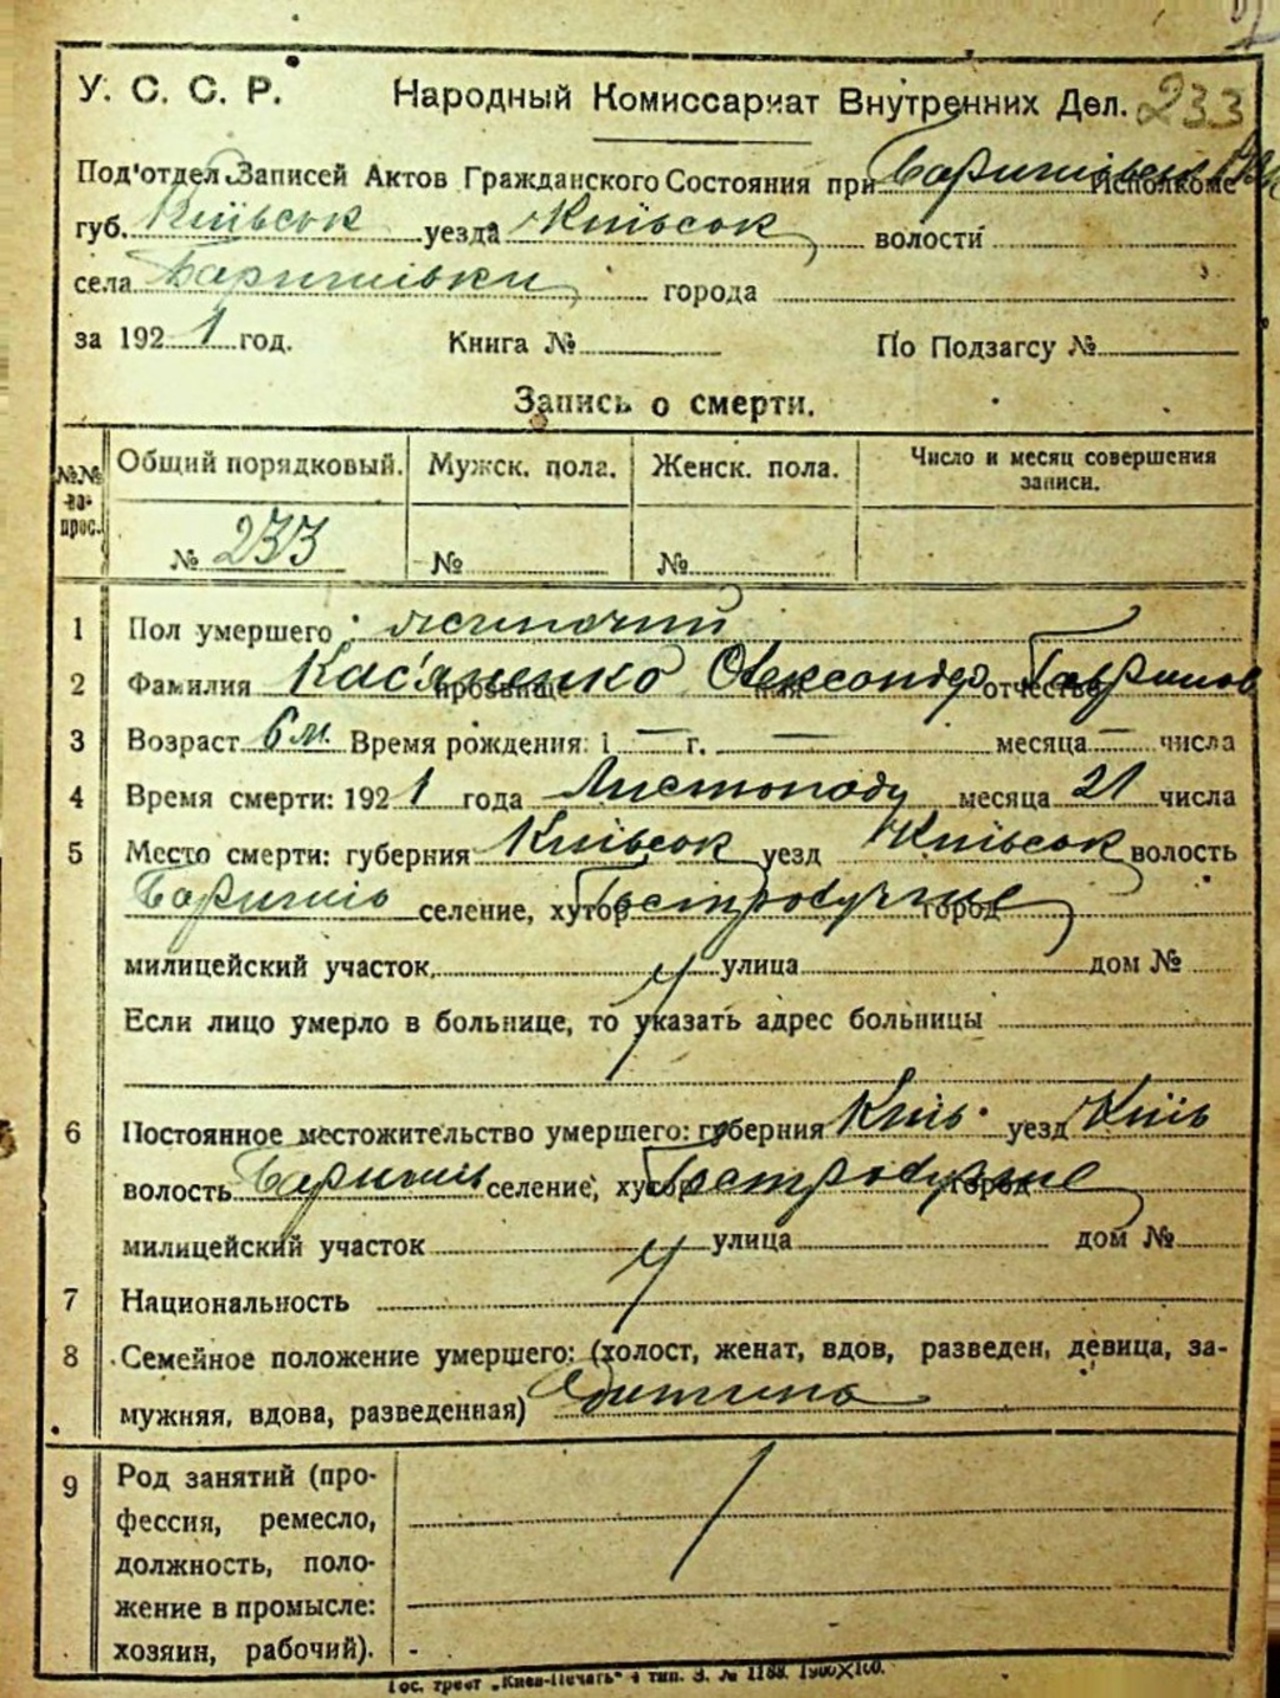 У. С. С. Р. Народный Комиссариат Внутренних Дел. 233
Под'отдел Записей Актов Гражданского Состояния при Баришівськ Исполкоме
губ. Київськ уезда Київськ волости
села Баришівки города
за 1921 год. Книга № По Подзагсу №
Запись о смерти.
№№ во-прос. Общий порядковый. Мужск. пола. Женск. пола. Число и месяц совершения записи.
№ 233 № №
1 Пол умершего
2 Фамилия Кас'яненко прозвище Олександр имя Гаврилов отчество
3 Возраст 6 м. Время рождения: 1 — г. — месяца — числа
4 Время смерти: 1921 года Листопаду месяца 21 числа
5 Место смерти: губерния Київськ уезд Київськ волость
Баришів селение, хутор Гостролуччє город
милицейский участок улица дом №
Если лицо умерло в больнице, то указать адрес больницы
6 Постоянное местожительство умершего: губерния Київ уезд Київ
волость Баришів селение, хутор Гостролуччє город
милицейский участок улица дом №
7 Национальность
8 Семейное положение умершего: (холост, женат, вдов, разведен, девица, за-
мужняя, вдова, разведенная) дитина
9 Род занятий (про-
фессия, ремесло,
должность, поло-
жение в промысле:
хозяин, рабочий). -
Гос. трест „Киев-Печать" 4 тип. З. № 1188. 1900×100.